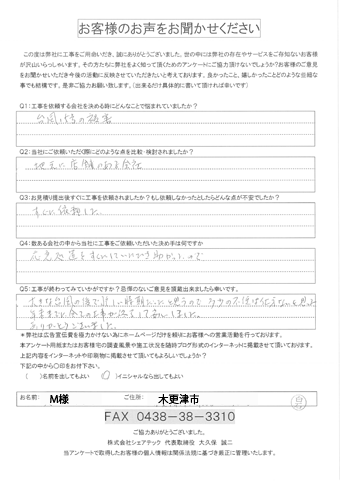 お客様のお声をお聞かせください
この度は弊社に工事をご用命いただき、誠にありがとうございました。世の中には弊社の存在やサービスをご存知ないお客様
が沢山いらっしゃいます。その方たちに弊社をよく知って頂くためのアンケートにご協力頂けないでしょうか?お客様のご意見
をお聞かせいただき今後の活動に反映させていただきたいと考えております。良かったこと、嬉しかったことどのような些細な
事でも結構です。是非ご協力お願い致します。(出来るだけ具体的に書いて頂ければ幸いです)
Q1:工事を依頼する会社を決める時にどんなことで悩まれていましたか?
台風15号の被害
Q2:当社にご依頼いただく際にどのような点を比較・検討されましたか?
地元に店舗がある会社
Q3:お見積り提出後すぐに工事を依頼されましたか?もし依頼しなかったとしたらどんな点が不安でしたか?
すぐに依頼した
Q4:数ある会社の中から当社に工事をご依頼いただいた決め手は何ですか
応急処置をしていただき助かったので
Q5:工事が終わってみていかがですか?忌憚のないご意見を頂戴出来ましたら幸いです。
大きな台風の後で忙しい時期だったと思うので
ありがとうございました。
*弊社は広告宣伝費を極力かけない為にホームページだけを頼りにお客様への営業活動を行っております。
本アンケート用紙またはお客様宅の調査風景や施工状況を随時ブログ形式のインターネットに掲載させて頂いております。
上記内容をインターネットや印刷物に掲載させて頂いてもよろしいでしょうか?
下記の中から○印をお付け下さい。
( )名前を出してもよい (○)イニシャルなら出してもよい
お名前: M様 ご住所: 木更津市
FAX 0438-38-3310
ご協力ありがとうございました。
株式会社シェアテック 代表取締役 大久保 誠二
当アンケートで取得したお客様の個人情報は関係法規に基づき厳正に管理いたします。